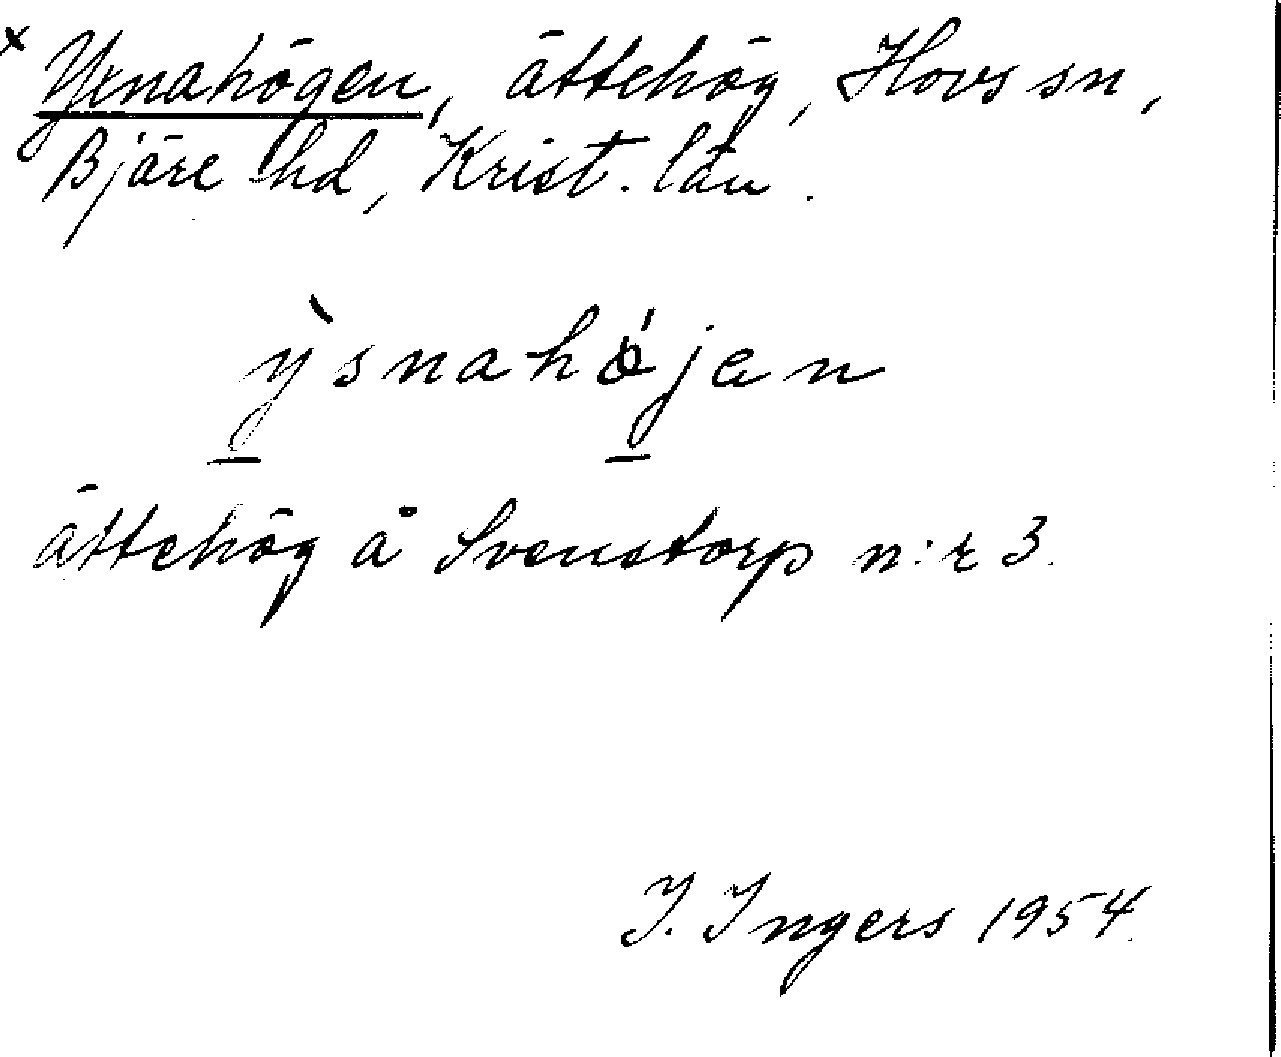 x Yxnahögen, ättehög, Hovs sn,
Bjäre hd, Krist. län.
ỳsnahǿjan
ättehög å Svenstorp n:r 3.
I. Ingers 1954.